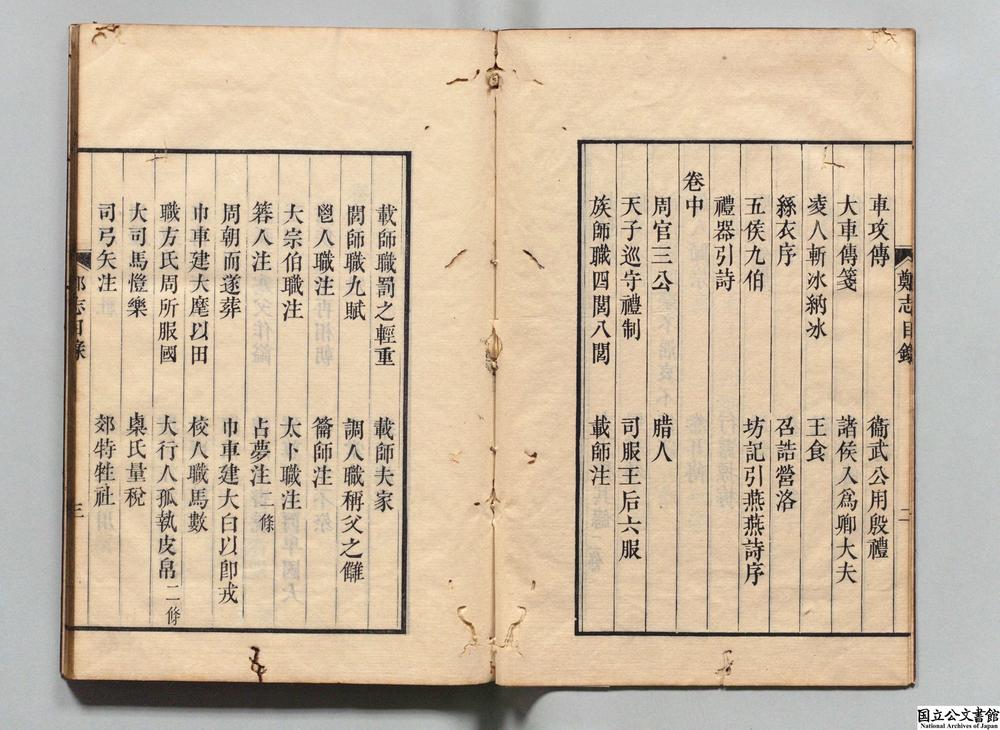 鄭志目錄 二
車攻傳 衞武公用殷禮
大車傳箋 諸侯入爲卿大夫
凌人斬冰納冰 王食
絲衣序 召誥營洛
五侯九伯 坊記引燕燕詩序
禮器引詩
卷中
周官三公 腊人
天子巡守禮制 司服王后六服
族師職四閭八閭 載師注
載師職罰之輕重 載師夫家
閭師職九賦 調人職稱父之讎
鬯人職注 籥師注
大宗伯職注 太卜職注
簭人注 占夢注二條
周朝而遂葬 巾車建大白以卽戎
巾車建大麾以田 校人職馬數
職方氏周所服國 大行人孤執皮帛二條
大司馬愷樂 㮚氏量稅
司弓矢注 郊特牲社
鄭志目錄 三
国立公文書館
National Archives of Japan